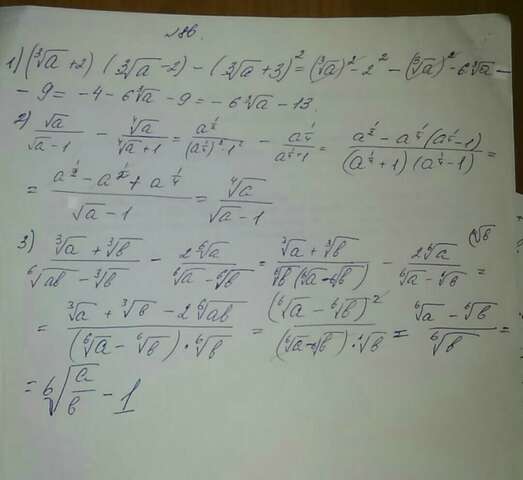 186.
1) (∛a + 2) (∛a - 2) - (∛a + 3)² = (∛a)² - 2² - (∛a)² - 6·∛a -
- 9 = - 4 - 6∛a - 9 = - 6∛a - 13.
2) √a / (√a - 1) - ∜a / (∜a + 1) = a^(1/2) / ((a^(1/4))² - 1²) - a^(1/4) / (a^(1/4) + 1) = (a^(1/2) - a^(1/4) (a^(1/4) - 1)) / ((a^(1/4) + 1) (a^(1/4) - 1)) =
= (a^(1/2) - a^(1/2) + a^(1/4)) / (√a - 1) = ∜a / (√a - 1)
3) (∛a + ∛b) / (⁶√ab - ∛b) - 2⁶√a / (⁶√a - ⁶√b) = (∛a + ∛b) / (⁶√b (⁶√a - ⁶√b)) - 2⁶√a / (⁶√a - ⁶√b) (⁶√b =
= (∛a + ∛b - 2⁶√ab) / ((⁶√a - ⁶√b) · ⁶√b) = (⁶√a - ⁶√b)² / ((⁶√a - ⁶√b) · ⁶√b) = (⁶√a - ⁶√b) / ⁶√b =
= ⁶√(a/b) - 1